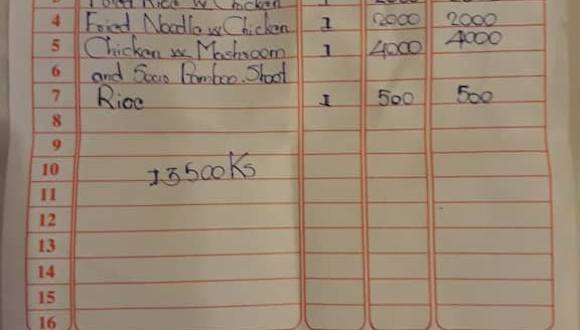 Fried Rice w Chicken 1
4 Fried Noodle w Chicken 1 2000 2000
5 Chicken w Mashroom 1 4000 4000
6 and Soup Bamboo Shoot
7 Rice 1 500 500
8
9
10 13500Ks
11
12
13
14
15
16